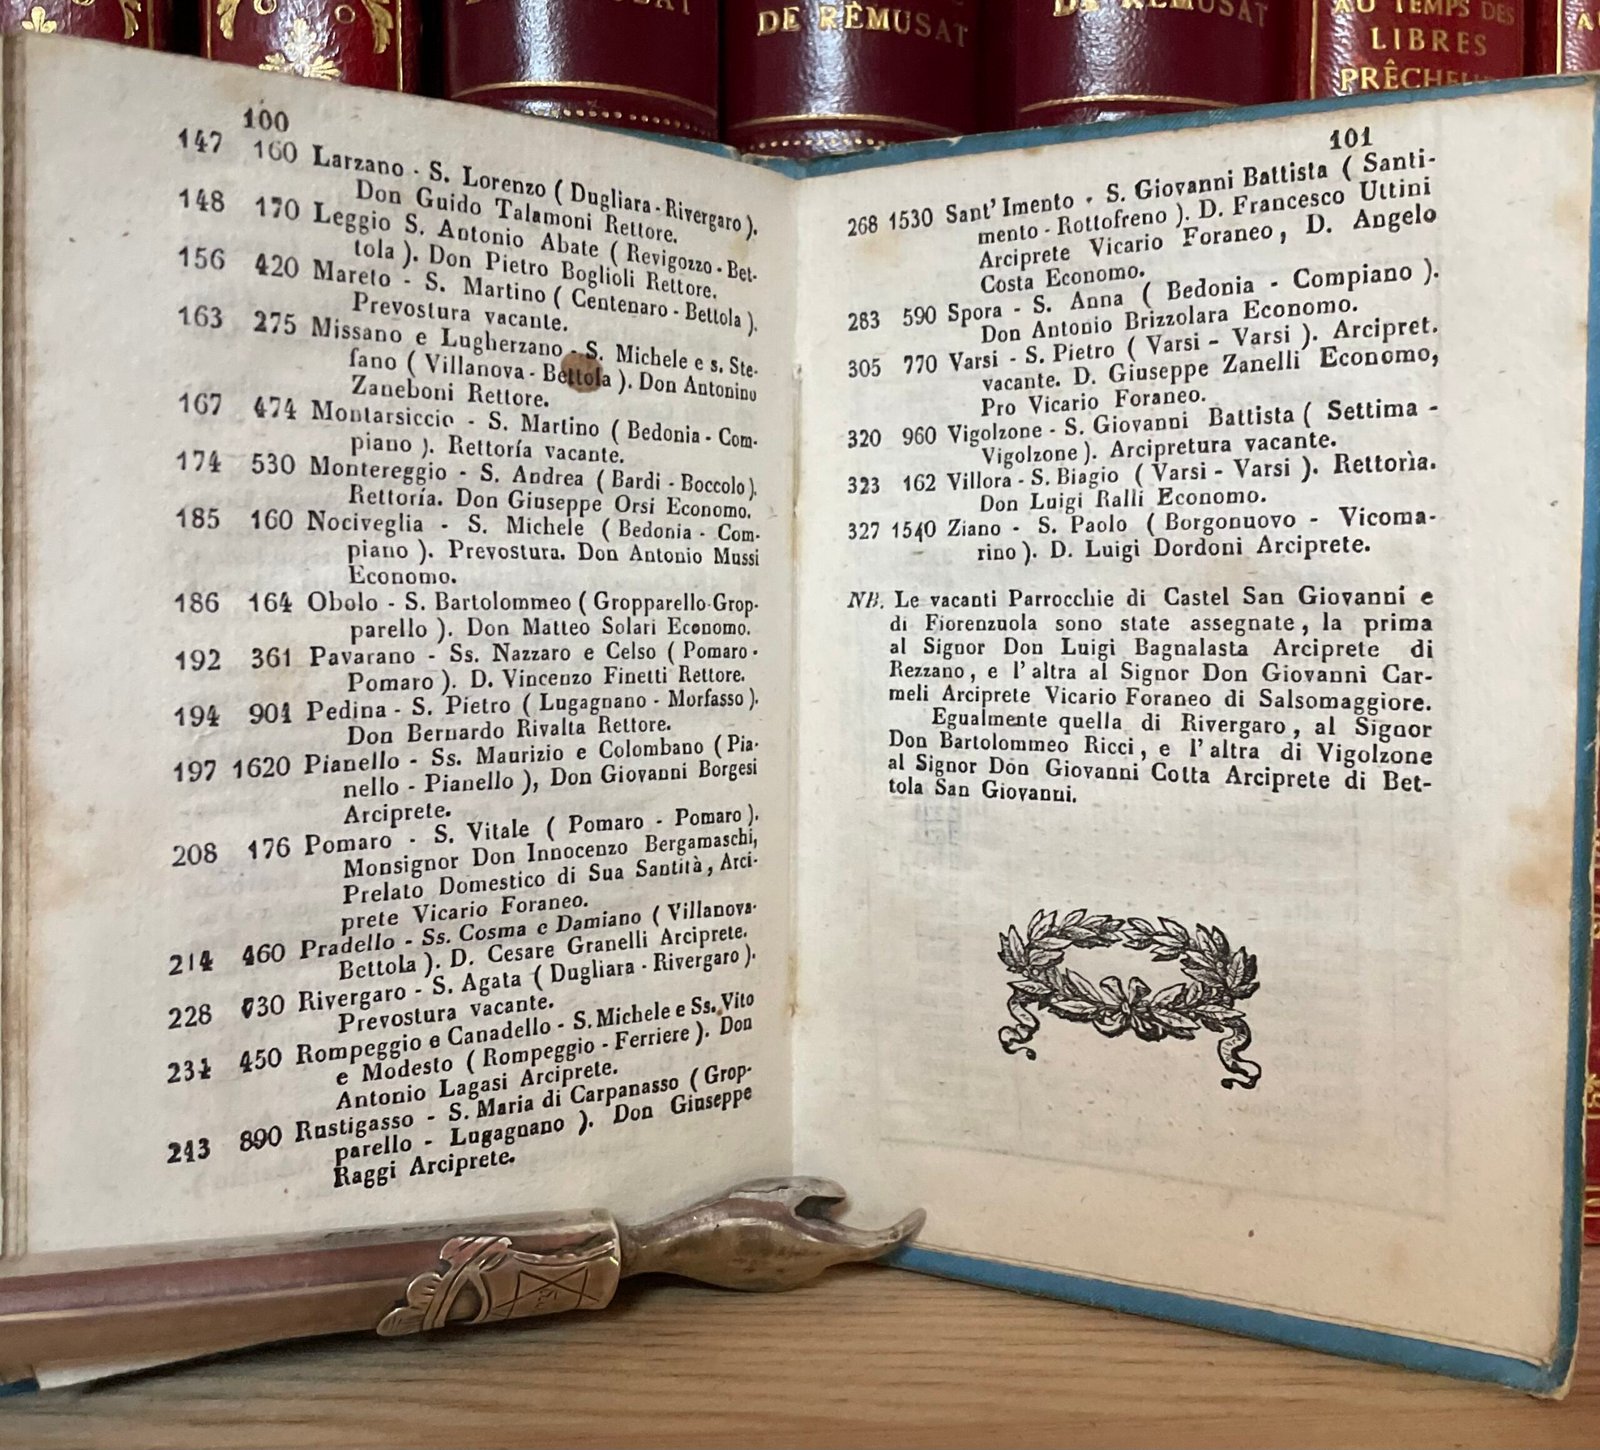 DE RÉMUSAT
AU TEMPS DES
LIBRES
PRÊCHEURS
100
147 160 Larzano - S. Lorenzo ( Dugliara - Rivergaro ).
Don Guido Talamoni Rettore.
148 170 Leggio S. Antonio Abate ( Revigozzo - Bet-
tola ). Don Pietro Boglioli Rettore.
156 420 Mareto - S. Martino ( Centenaro - Bettola ).
Prevostura vacante.
163 275 Missano e Lugherzano - S. Michele e s. Ste-
fano ( Villanova - Bettola ). Don Antonino
Zaneboni Rettore.
167 474 Montarsiccio - S. Martino ( Bedonia - Com-
piano ). Rettoría vacante.
174 530 Montereggio - S. Andrea ( Bardi - Boccolo ).
Rettoría. Don Giuseppe Orsi Economo.
185 160 Nociveglia - S. Michele ( Bedonia - Com-
piano ). Prevostura. Don Antonio Mussi
Economo.
186 164 Obolo - S. Bartolommeo ( Gropparello-Grop-
parello ). Don Matteo Solari Economo.
192 361 Pavarano - Ss. Nazzaro e Celso ( Pomaro -
Pomaro ). D. Vincenzo Finetti Rettore.
194 901 Pedina - S. Pietro ( Lugagnano - Morfasso ).
Don Bernardo Rivalta Rettore.
197 1620 Pianello - Ss. Maurizio e Colombano ( Pia-
nello - Pianello ), Don Giovanni Borgesi
Arciprete.
208 176 Pomaro - S. Vitale ( Pomaro - Pomaro ).
Monsignor Don Innocenzo Bergamaschi,
Prelato Domestico di Sua Santità, Arci-
prete Vicario Foraneo.
214 460 Pradello - Ss. Cosma e Damiano ( Villanova-
Bettola ). D. Cesare Granelli Arciprete.
228 730 Rivergaro - S. Agata ( Dugliara - Rivergaro ).
Prevostura vacante.
234 450 Rompeggio e Canadello - S. Michele e Ss. Vito
e Modesto ( Rompeggio - Ferriere ). Don
Antonio Lagasi Arciprete.
243 890 Rustigasso - S. Maria di Carpanasso ( Grop-
parello - Lugagnano ). Don Giuseppe
Raggi Arciprete.
101
268 1530 Sant' Imento - S. Giovanni Battista ( Santi-
mento - Rottofreno ). D. Francesco Uttini
Arciprete Vicario Foraneo, D. Angelo
Costa Economo.
283 590 Spora - S. Anna ( Bedonia - Compiano ).
Don Antonio Brizzolara Economo.
305 770 Varsi - S. Pietro ( Varsi - Varsi ). Arcipret.
vacante. D. Giuseppe Zanelli Economo,
Pro Vicario Foraneo.
320 960 Vigolzone - S. Giovanni Battista ( Settima -
Vigolzone ). Arcipretura vacante.
323 162 Villora - S. Biagio ( Varsi - Varsi ). Rettorìa.
Don Luigi Ralli Economo.
327 1540 Ziano - S. Paolo ( Borgonuovo - Vicoma-
rino ). D. Luigi Dordoni Arciprete.
NB. Le vacanti Parrocchie di Castel San Giovanni e
di Fiorenzuola sono state assegnate, la prima
al Signor Don Luigi Bagnalasta Arciprete di
Rezzano, e l' altra al Signor Don Giovanni Car-
meli Arciprete Vicario Foraneo di Salsomaggiore.
Egualmente quella di Rivergaro, al Signor
Don Bartolommeo Ricci, e l' altra di Vigolzone
al Signor Don Giovanni Cotta Arciprete di Bet-
tola San Giovanni.